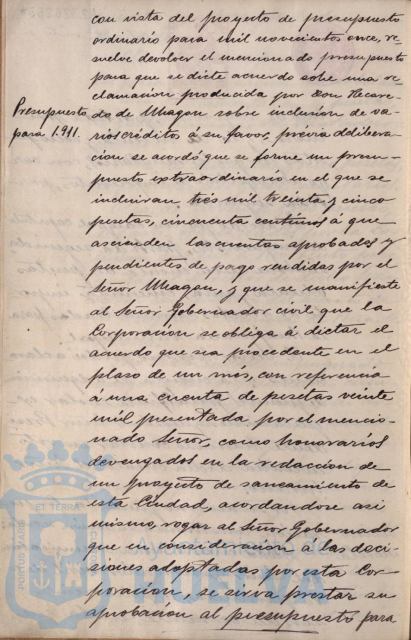 con vista del proyecto de presupuesto
ordinario para mil novecientos once, re-
suelve devolver el mencionado presupuesto
para que se dicte acuerdo sobre una re-
clamación producida por Don Recare-
Presupuesto
para 1.911.
do de Uhagon sobre inclusion de va-
rios créditos á su favor, prévia delibera-
cion se acordó que se forme un presu-
puesto extraordinario en el que se
incluiran tres mil treinta y cinco
pesetas, cincuenta centimos á que
ascienden las cuentas aprobadas y
pendientes de pago rendidas por el
Señor Uhagon, y que se manifieste
al Señor Gobernador civil que la
Corporación se obliga á dictar el
acuerdo que sea procedente en el
plazo de un més, con referencia
á una cuenta de pesetas veinte
mil presentada por el mencio-
nado Señor, como honorarios
devengados en la redaccion de
un proyecto de saneamiento de
esta Ciudad, acordandose asi
mismo, rogar al Señor Gobernador
que en consideracion á las deci-
siones adoptadas por esta Cor-
poración, se sirva prestar su
aprobacion al presupuesto para
PORTUS MARIS
ET TERRÆ
Ayuntamiento de
HUELVA